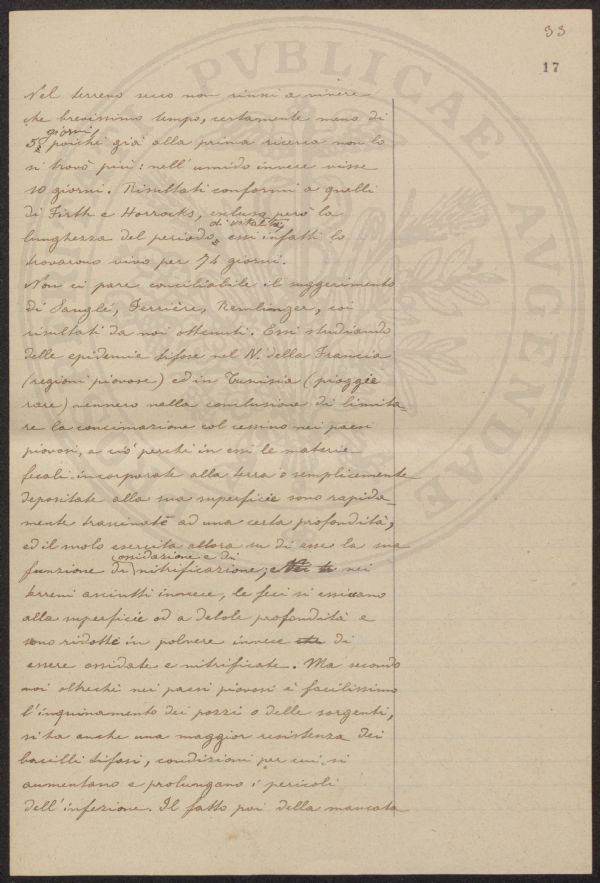 33
17
Nel terreno secco non riuscì a vivere
che brevissimo tempo, certamente meno di
5 giorni, poichè già alla prima ricerca non lo
si trovò più: nell'umido invece visse
10 giorni. Risultati conformi a quelli
di Firth e Horrocks, esclusa però la
lunghezza del periodo di vitalità, essi infatti lo
trovarono vivo per 74 giorni.
Non ci pare conciliabile il suggerimento
di Sanglé, Ferrière, Remlinger, coi
risultati da noi ottenuti. Essi studiando
delle epidemie tifose nel N. della Francia
(regioni piovose) ed in Tunisia (pioggie
rare) vennero nella conclusione di limita-
re la concimazione col cessino nei paesi
piovosi, e ciò perchè in essi le materie
fecali incorporate alla terra o semplicemente
depositate alla sua superficie sono rapida-
mente trascinate ad una certa profondità,
ed il suolo esercita allora su di esse la sua
funzione di ossidazione e di nitrificazione; nei
terreni asciutti invece, le feci si essicano
alla superficie od a debole profondità e
sono ridotte in polvere invece di
essere ossidate e nitrificate. Ma secondo
noi oltrechè nei paesi piovosi è facilissimo
l'inquinamento dei pozzi o delle sorgenti,
si ha anche una maggior resistenza dei
bacilli tifosi, condizioni per cui si
aumentano e prolungano i pericoli
dell'infezione. Il fatto poi della mancata
PVBLICAE
AVGENDAE